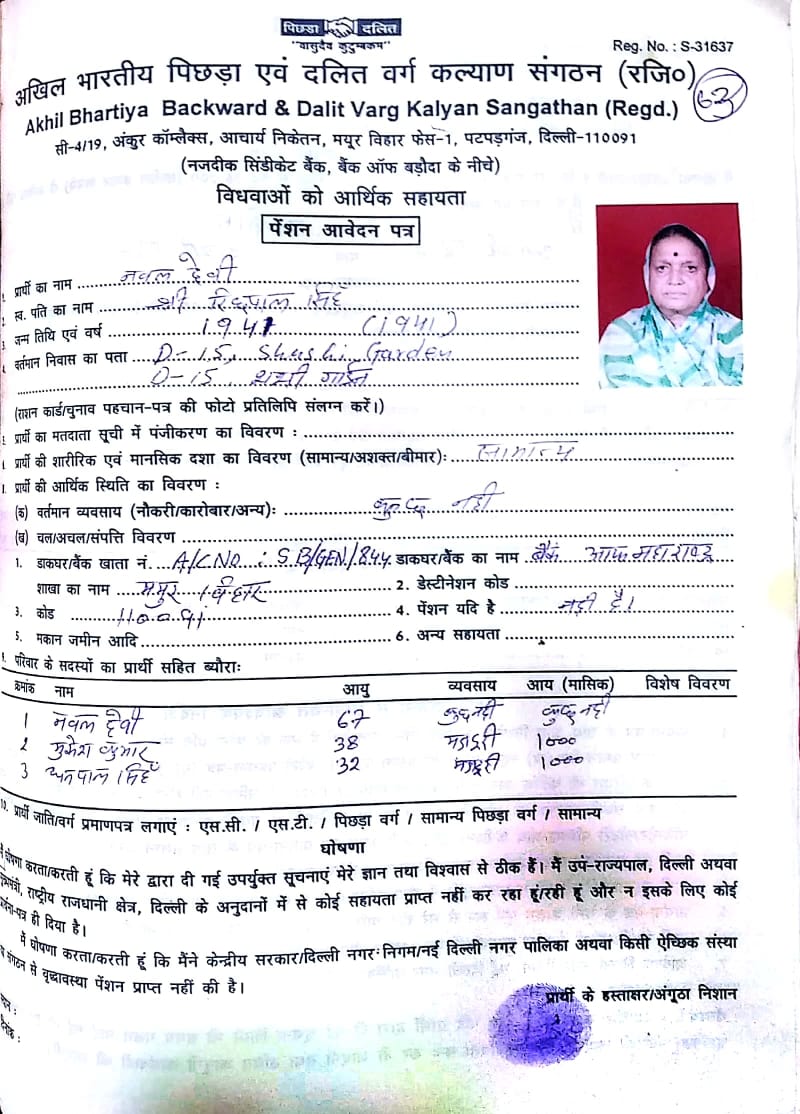 पिछड़ा दलित
"वासुदैव कुटुम्बकम"
Reg. No. : S-31637
अखिल भारतीय पिछड़ा एवं दलित वर्ग कल्याण संगठन (रजि०)
63
Akhil Bhartiya Backward & Dalit Varg Kalyan Sangathan (Regd.)
सी-4/19, अंकुर कॉम्लैक्स, आचार्य निकेतन, मयूर विहार फेस-1, पटपड़गंज, दिल्ली-110091
(नजदीक सिंडीकेट बैंक, बैंक ऑफ बड़ौदा के नीचे)
विधवाओं को आर्थिक सहायता
पेंशन आवेदन पत्र
1. प्रार्थी का नाम नवल देवी
2. स्व. पति का नाम श्री रिछपाल सिंह
3. जन्म तिथि एवं वर्ष 1941 (1941)
4. वर्तमान निवास का पता D-15, Shashi Garden
D-15, शशी गार्डन
(राशन कार्ड/चुनाव पहचान-पत्र की फोटो प्रतिलिपि संलग्न करें।)
प्रार्थी का मतदाता सूची में पंजीकरण का विवरण :
प्रार्थी की शारीरिक एवं मानसिक दशा का विवरण (सामान्य/अशक्त/बीमार): सामान्य
प्रार्थी की आर्थिक स्थिति का विवरण :
(क) वर्तमान व्यवसाय (नौकरी/कारोबार/अन्य): कुछ नही
(ख) चल/अचल/संपत्ति विवरण
1. डाकघर/बैंक खाता नं. A/C NO : S.B/GEN/844 डाकघर/बैंक का नाम बैंक आफ महाराष्ट्र
शाखा का नाम मयुर विहार 2. डेस्टीनेशन कोड
3. कोड 110091 4. पेंशन यदि है नही है।
5. मकान जमीन आदि 6. अन्य सहायता
परिवार के सदस्यों का प्रार्थी सहित ब्यौराः
क्रमांक नाम आयु व्यवसाय आय (मासिक) विशेष विवरण
1 नवल देवी 67 कुछ नही कुछ नही
2 मुकेश कुमार 38 मजदूरी 1000
3 सिंह 32 मजदूरी 1000
10. प्रार्थी जाति/वर्ग प्रमाणपत्र लगाएं : एस.सी. / एस.टी. / पिछड़ा वर्ग / सामान्य पिछड़ा वर्ग / सामान्य
घोषणा
मैं घोषणा करता/करती हूं कि मेरे द्वारा दी गई उपर्युक्त सूचनाएं मेरे ज्ञान तथा विश्वास से ठीक हैं। मैं उप-राज्यपाल, दिल्ली अथवा
राष्ट्रीय राजधानी क्षेत्र, दिल्ली के अनुदानों में से कोई सहायता प्राप्त नहीं कर रहा हूं/रही हूं और न इसके लिए कोई
ही दिया है।
में घोषणा करता/करती हूं कि मैंने केन्द्रीय सरकार/दिल्ली नगर निगम/नई दिल्ली नगर पालिका अथवा किसी ऐच्छिक संस्था
संगठन से वृद्धावस्था पेंशन प्राप्त नहीं की है।
प्रार्थी के हस्ताक्षर/अंगूठा निशान